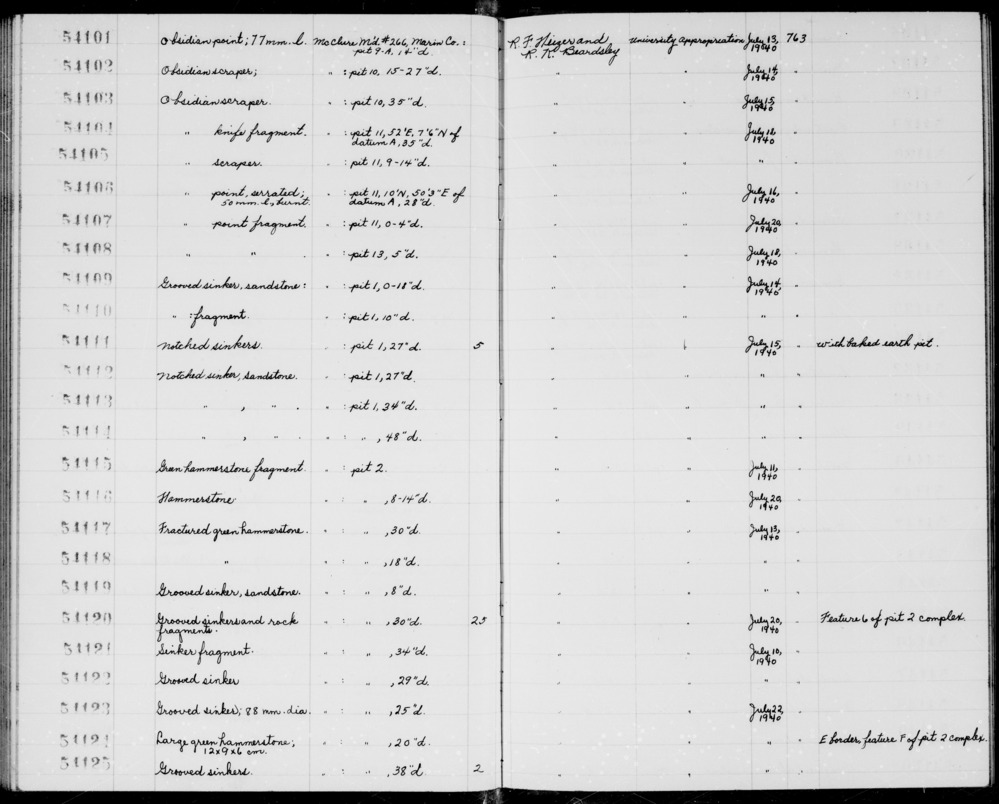 54101 Obsidian point; 77mm. l. McClure M'd. #266, Marin Co.: R. F. Heizer and University Appropriation July 13, 763
pit 9-A, 14"d. R. K. Beardsley 1940
54102 Obsidian scraper; " : pit 10, 15-27"d. " " July 14, "
1940
54103 Obsidian scraper. " : pit 10, 35"d. " " July 15, "
1940
54104 " knife fragment. " : pit 11, 52'E, 7'6"N of " " July 18 "
datum A, 35"d. 1940
54105 " scraper. " : pit 11, 9-14"d. " " " "
54106 " point, serrated; " : pit 11, 10'N, 50'3"E of " " July 16, "
50mm. l., burnt. datum A, 28"d. 1940
54107 " point fragment. " : pit 11, 0-4"d. " " July 20, "
1940
54108 " " " : pit 13, 5"d. " " July 18, "
1940
54109 Grooved sinker, sandstone: " : pit 1, 0-18"d. " " July 14, "
1940
54110 " : fragment. " : pit 1, 10"d. " " " "
54111 Notched sinkers. " : pit 1, 27"d. 5 " " July 15, " with baked earth pit.
1940
54112 Notched sinker, sandstone. " : pit 1, 27"d. " " " "
54113 " , " . " : pit 1, 34"d. " " " "
54114 " , " . " : " , 48"d. " " " "
54115 Green hammerstone fragment. " : pit 2. " " July 11, "
1940
54116 Hammerstone " : " , 8-14"d. " " July 20, "
1940
54117 Fractured green hammerstone. " : " , 30"d. " " July 13, "
1940
54118 " " : " , 18"d. " " " "
54119 Grooved sinker, sandstone. " : " , 8"d. " " " "
54120 Grooved sinkers and rock " : " , 30"d. 25 " " July 20, " Feature 6 of pit 2 complex.
fragments. 1940
54121 Sinker fragment. " : " , 34"d. " " July 10, "
1940
54122 Grooved sinker " : " , 29"d. " " " "
54123 Grooved sinker; 88 mm. dia. " : " , 25"d. " " July 22, "
1940
54124 Large green hammerstone; " : " , 20"d. " " " " E border, feature F of pit 2 complex.
12x9x6 cm.
54125 Grooved sinkers. " : " , 38"d 2 " " " "